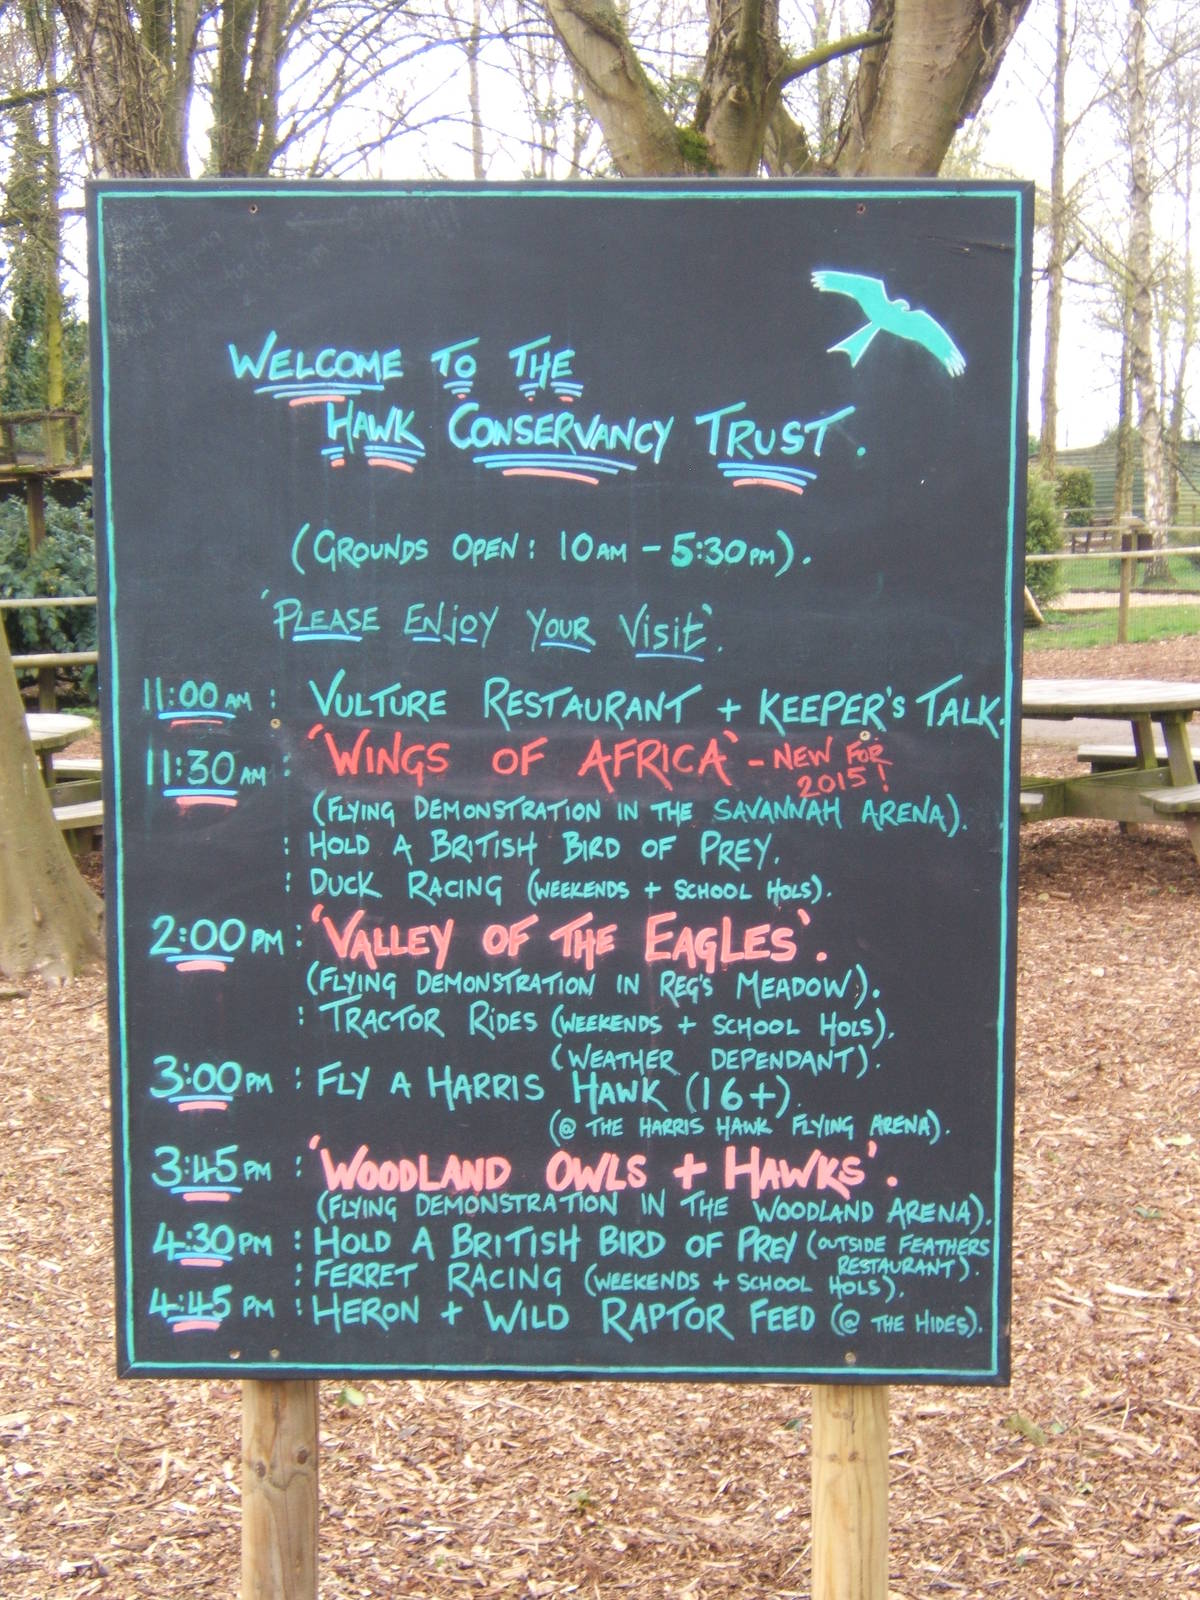 WELCOME TO THE
HAWK CONSERVANCY TRUST.
(GROUNDS OPEN: 10AM - 5:30PM).
'PLEASE ENJOY YOUR VISIT'.
11:00 AM : VULTURE RESTAURANT + KEEPER'S TALK.
11:30 AM : 'WINGS OF AFRICA' - NEW FOR
2015!
(FLYING DEMONSTRATION IN THE SAVANNAH ARENA).
: HOLD A BRITISH BIRD OF PREY.
: DUCK RACING (WEEKENDS + SCHOOL HOLS).
2:00 PM : 'VALLEY OF THE EAGLES'.
(FLYING DEMONSTRATION IN REG'S MEADOW).
: TRACTOR RIDES (WEEKENDS + SCHOOL HOLS).
(WEATHER DEPENDANT).
3:00 PM : FLY A HARRIS HAWK (16+).
(@ THE HARRIS HAWK FLYING ARENA).
3:45 PM : 'WOODLAND OWLS + HAWKS'.
(FLYING DEMONSTRATION IN THE WOODLAND ARENA).
4:30 PM : HOLD A BRITISH BIRD OF PREY (OUTSIDE FEATHERS
RESTAURANT).
: FERRET RACING (WEEKENDS + SCHOOL HOLS).
4:45 PM : HERON + WILD RAPTOR FEED (@ THE HIDES).